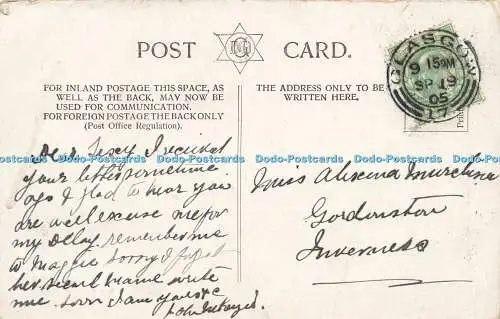 POST CARD.
FOR INLAND POSTAGE THIS SPACE, AS
WELL AS THE BACK, MAY NOW BE
USED FOR COMMUNICATION.
FOR FOREIGN POSTAGE THE BACK ONLY
(Post Office Regulation).
THE ADDRESS ONLY TO BE
WRITTEN HERE.
GLASGOW
9 15PM
SP 19
05
17
Dear I received
your letter sometime
ago & glad to hear you
are well excuse me for
my Delay. remember me
to Maggie Sorry I forgot
her name write
me soon I am yours &c
John
Miss
Gordonston
Inverness
Dodo-Postcards Dodo-Postcards Dodo-Postcards Dodo-Postcards Dodo-Postcards
www.dodo-postcards.com